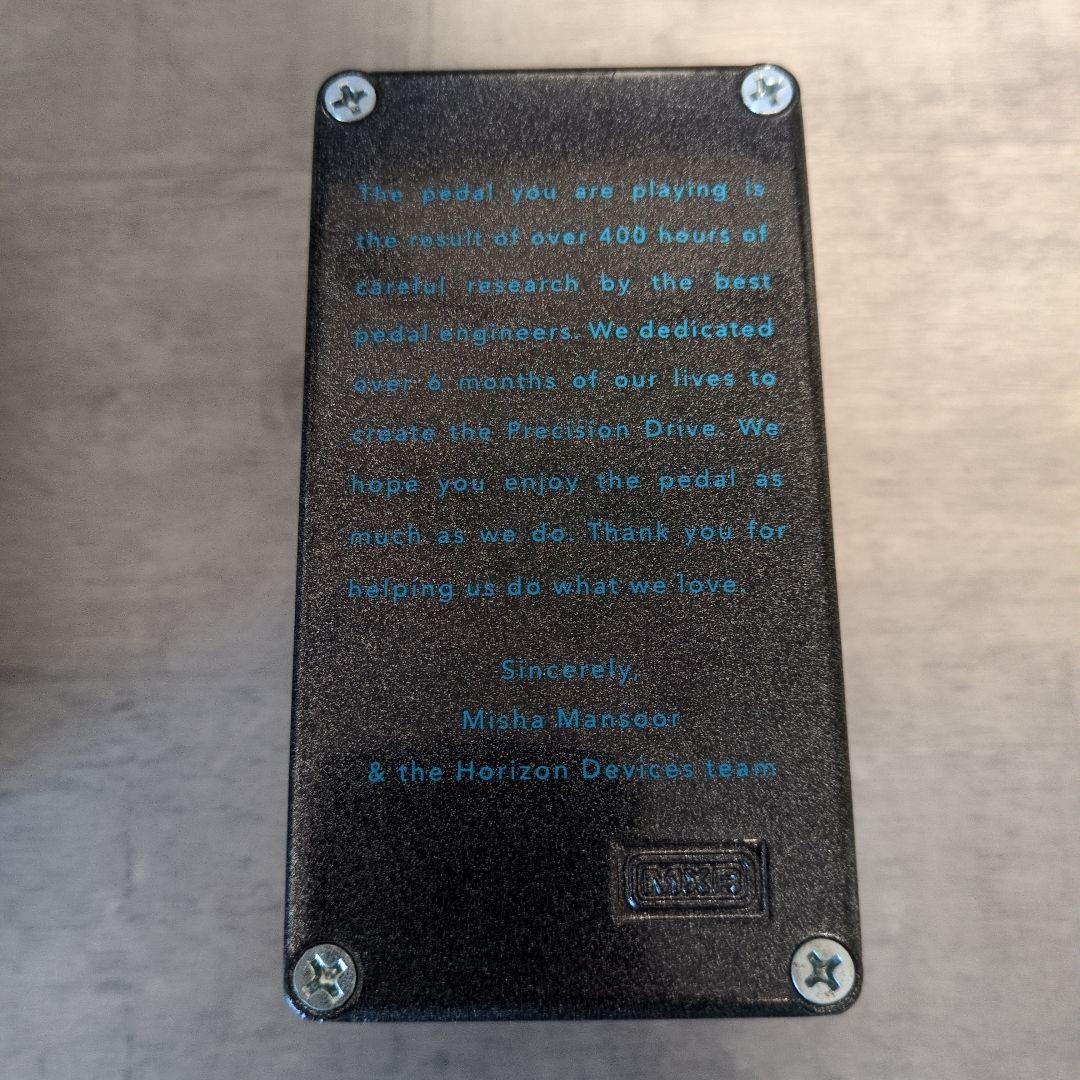 The pedal you are playing is
the result of over 400 hours of
careful research by the best
pedal engineers. We dedicated
over 6 months of our lives to
create the Precision Drive. We
hope you enjoy the pedal as
much as we do. Thank you for
helping us do what we love.
Sincerely,
Misha Mansoor
& the Horizon Devices team
MXR